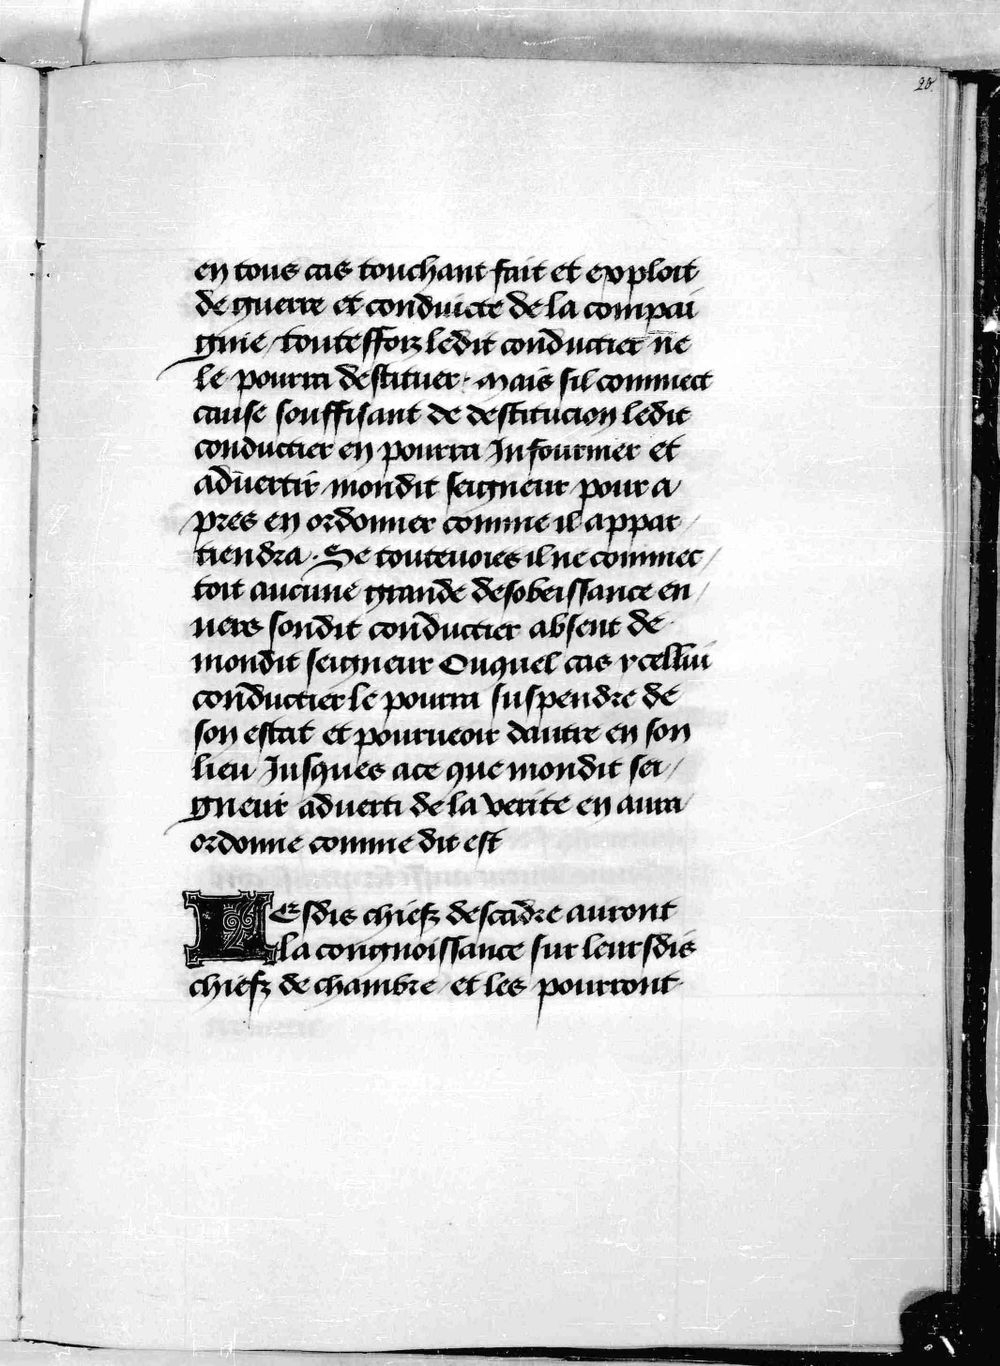 20.
en tous cas touchant fait et exploit
de guerre et conduicte de la compai
gnie / touteffoiz ledit conductier ne
le pourra destituer. Mais sil commect
cause souffisant de destitucion ledit
conductier en pourra Infourmer et
aduertir mondit seigneur pour a
pres en ordonner comme il appar /
tiendra. Se toutevoies il ne commec /
toit aucune grande desobeissance en /
uers sondit conductier absent de
mondit seigneur Ouquel cas ycellui
conductier le pourra suspendre de
son estat et pourueoir dautre en son
lieu Jusques ace que mondit sei /
gneur aduerti de la verite en aura
ordonne comme dit est
LEsdis chiefz descadre auront
la congnoissance sur leursdis
chiefz de chambre / et les pourront